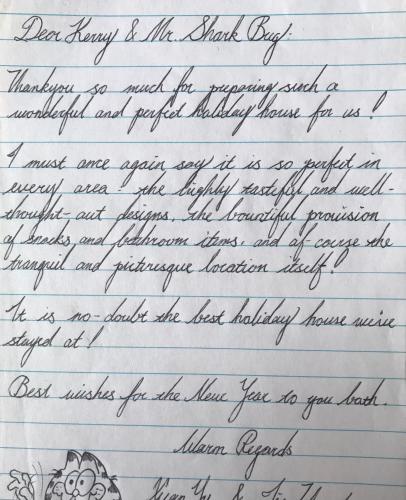 Dear Kerry & Mr. Shark Bay!
Thankyou so much for preparing such a
wonderful and perfect holiday house for us!
I must once again say it is so perfect in
every area - the highly tasteful and well-
thought-out designs, the bountiful provision
of snacks and bathroom items, and of course the
tranquil and picturesque location itself!
It is no-doubt the best holiday house we've
stayed at!
Best wishes for the New Year to you both.
Warm Regards